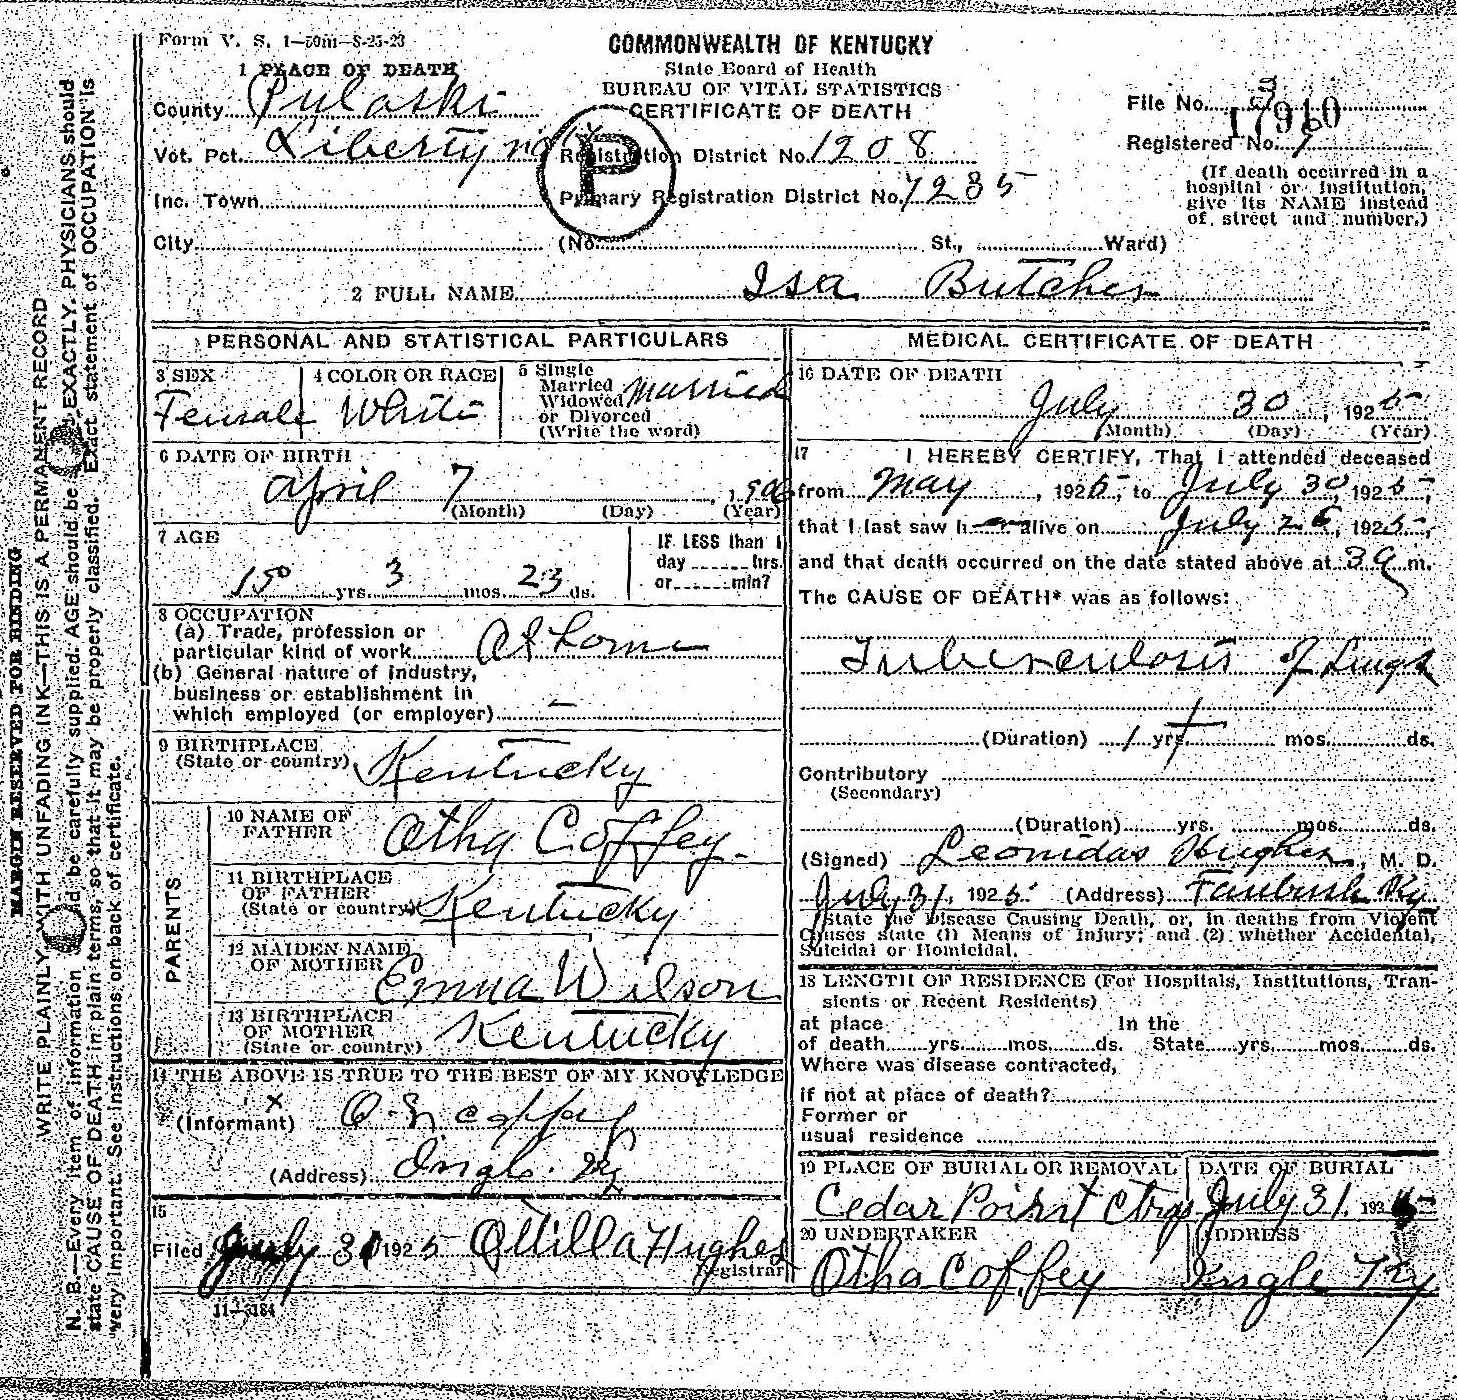 Form V. S. 1—50m—8-25-23
COMMONWEALTH OF KENTUCKY
State Board of Health
BUREAU OF VITAL STATISTICS
CERTIFICATE OF DEATH
1 PLACE OF DEATH
County Pulaski
Vot. Pct. Liberty
Inc. Town
City
P
Registration District No. 1208
Primary Registration District No. 7235
(No. St., Ward)
File No. 17910
Registered No.
(If death occurred in a
hospital or institution,
give its NAME instead
of street and number.)
2 FULL NAME Isa Butcher
PERSONAL AND STATISTICAL PARTICULARS
3 SEX
Female
4 COLOR OR RACE
White
5 Single
Married
Widowed
or Divorced
(Write the word)
Married
6 DATE OF BIRTH
April 7, 190
(Month) (Day) (Year)
7 AGE
yrs. 3 mos. 23 ds.
IF LESS than 1
day hrs.
or min?
8 OCCUPATION
(a) Trade, profession or
particular kind of work At home
(b) General nature of Industry,
business or establishment in
which employed (or employer) —
9 BIRTHPLACE
(State or country) Kentucky
PARENTS
10 NAME OF
FATHER Otha Coffey
11 BIRTHPLACE
OF FATHER
(State or country) Kentucky
12 MAIDEN NAME
OF MOTHER Emma Wilson
13 BIRTHPLACE
OF MOTHER
(State or country) Kentucky
14 THE ABOVE IS TRUE TO THE BEST OF MY KNOWLEDGE
X
(Informant) Coffey
(Address) Ingle Ky
15
Filed July 31 1925 Otilla Hughes
Registrar
11—3184
MEDICAL CERTIFICATE OF DEATH
16 DATE OF DEATH
July 30, 1925
(Month) (Day) (Year)
17 I HEREBY CERTIFY, That I attended deceased
from May, 1925, to July 30, 1925,
that I last saw h alive on July 26, 1925,
and that death occurred on the date stated above at 3 a m.
The CAUSE OF DEATH* was as follows:
Tuberculosis of Lungs
(Duration) 1 yrs. + mos. ds.
Contributory
(Secondary)
(Duration) yrs. mos. ds.
(Signed) Leonidas Hughes, M. D.
July 31, 1925 (Address) Faubush Ky
State the Disease Causing Death, or, in deaths from Violent
Causes state (1) Means of Injury; and (2) whether Accidental,
Suicidal or Homicidal.
18 LENGTH OF RESIDENCE (For Hospitals, Institutions, Tran-
sients or Recent Residents)
at place In the
of death yrs. mos. ds. State yrs. mos. ds.
Where was disease contracted,
if not at place of death?
Former or
usual residence
19 PLACE OF BURIAL OR REMOVAL
Cedar Point
DATE OF BURIAL
July 31, 1925
20 UNDERTAKER
Otha Coffey
ADDRESS
Ingle Ky
MARGIN RESERVED FOR BINDING
WRITE PLAINLY WITH UNFADING INK—THIS IS A PERMANENT RECORD
N. B.—Every item of information should be carefully supplied. AGE should be EXACTLY. PHYSICIANS should
state CAUSE OF DEATH in plain terms, so that it may be properly classified. Exact statement of OCCUPATION is
very important. See instructions on back of certificate.